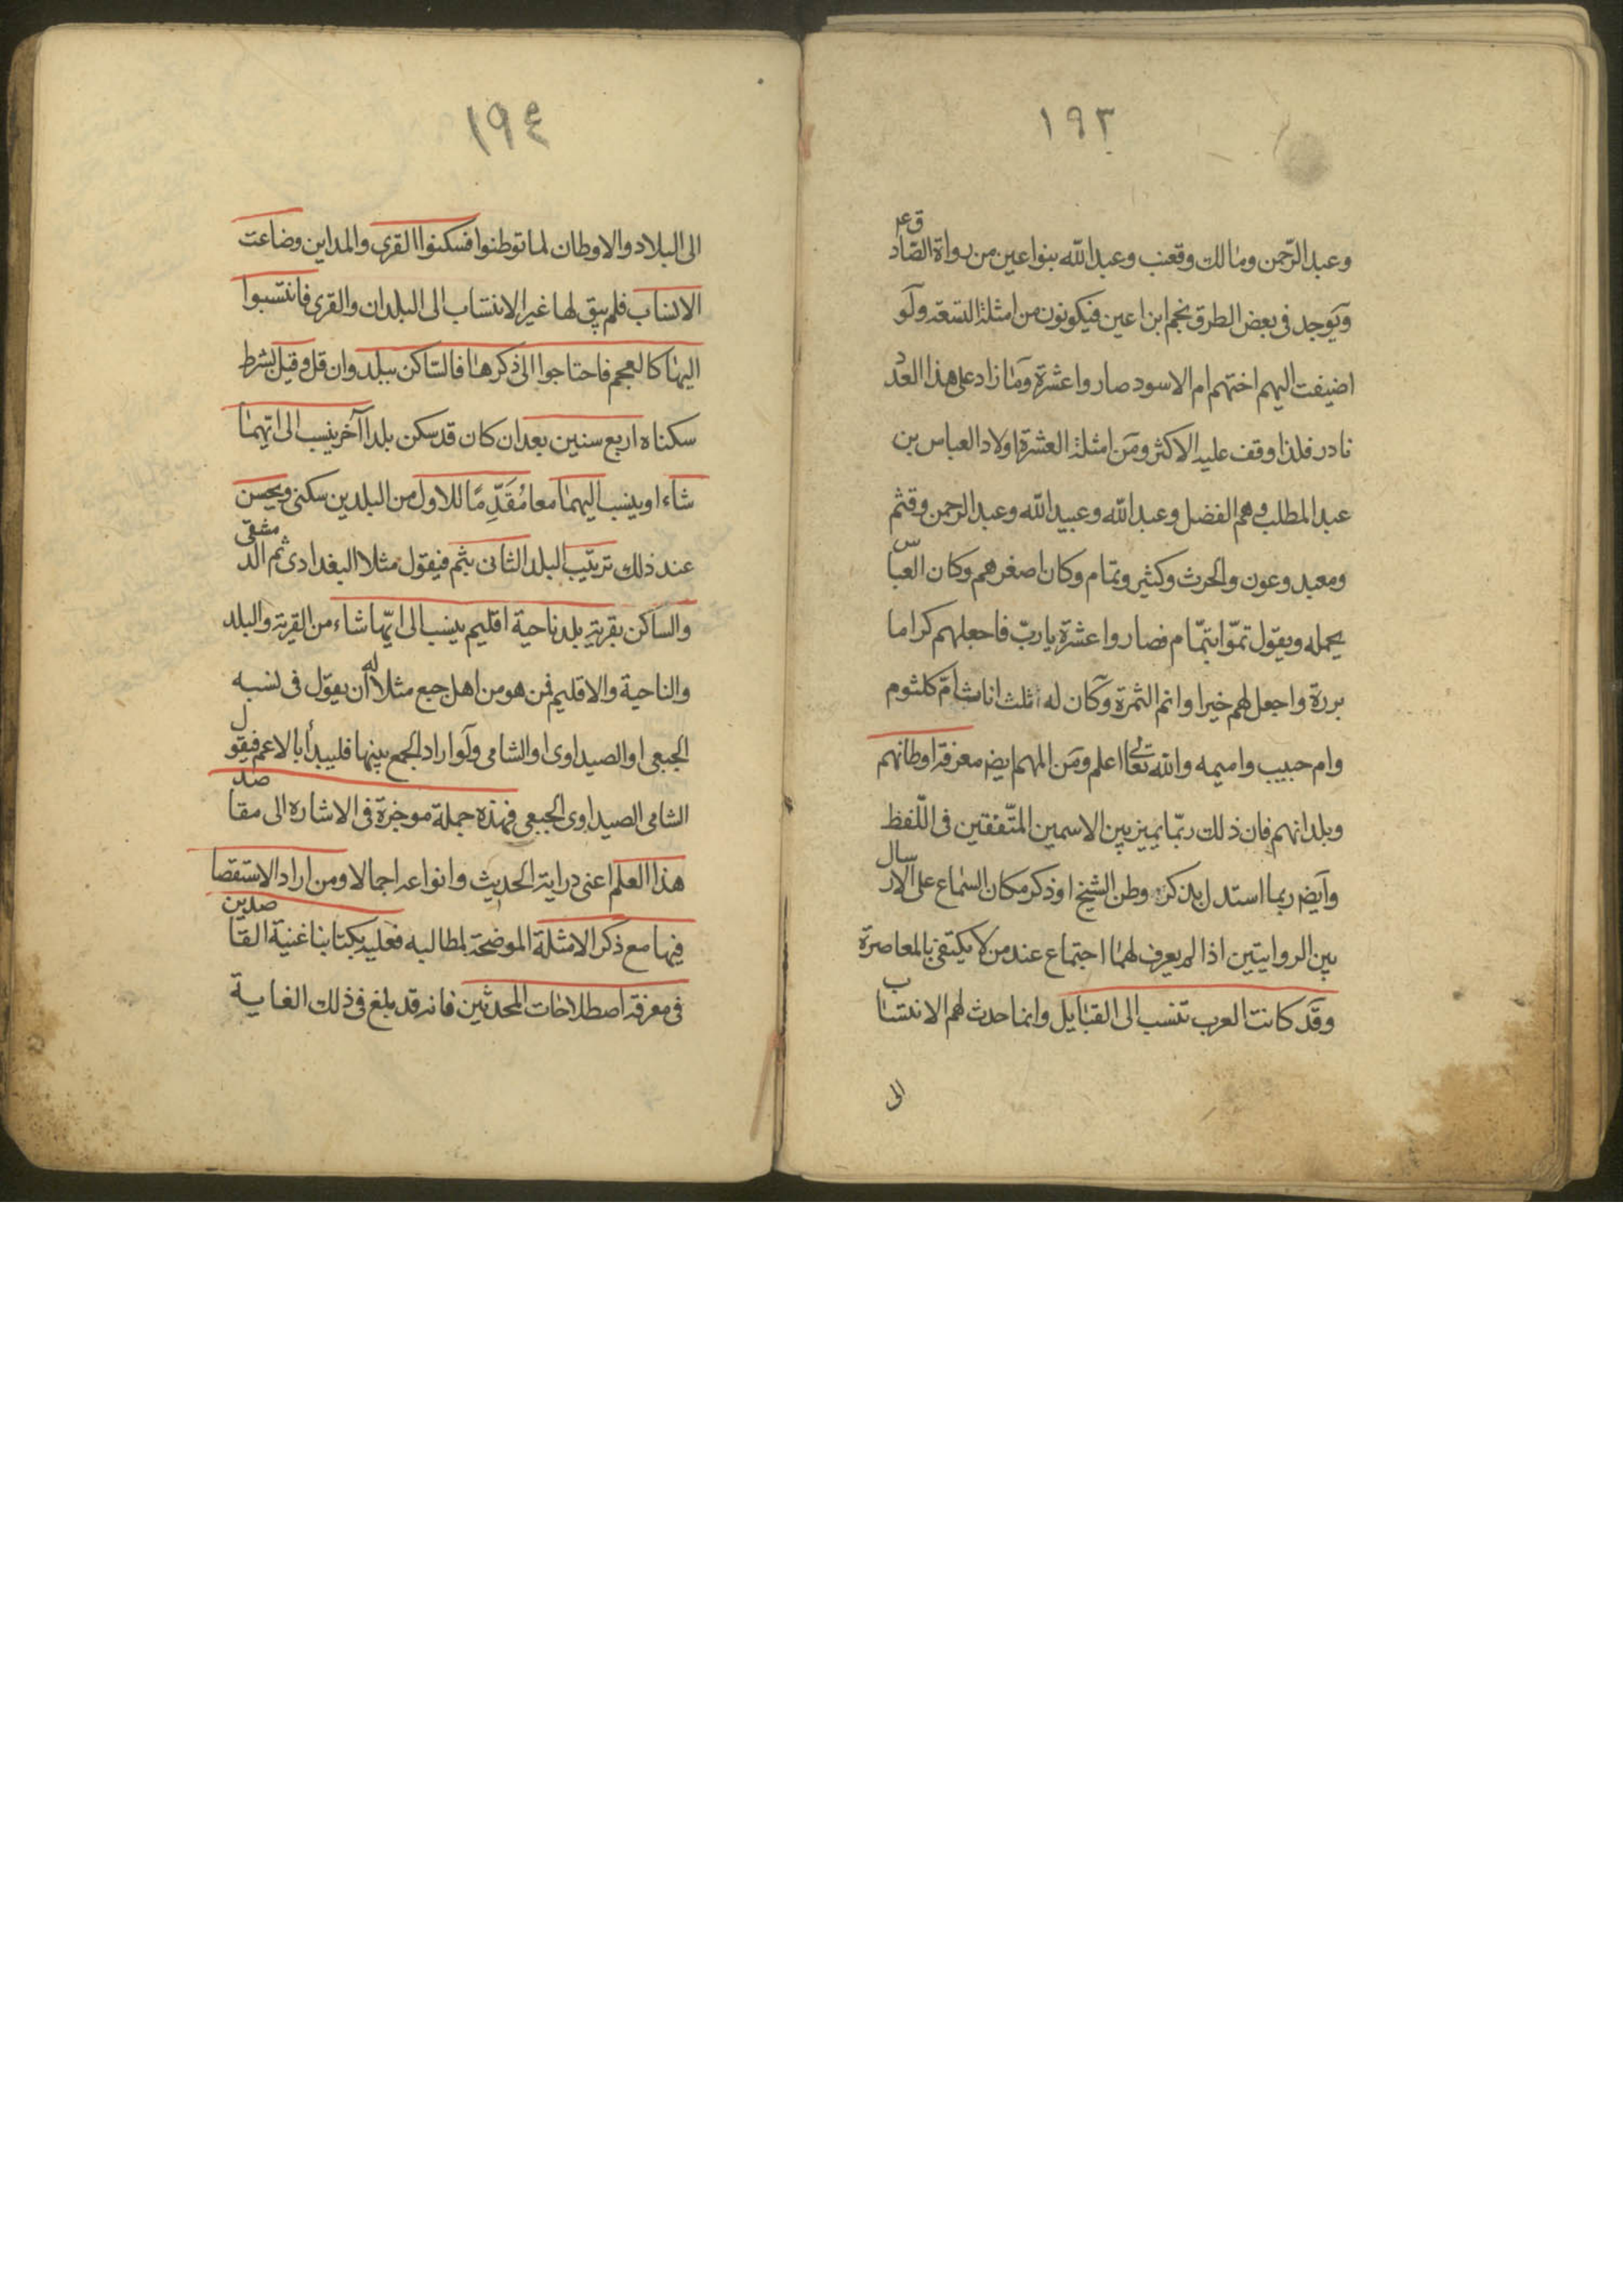 ١٩٣
وعبد الرّحمن ومالك وقعنب وعبد الله بنو اعين من رواة الصّادق ع
ويوجد في بعض الطرق نجم ابن اعين فيكونون من امثلة التسعة ولو
اضيفت اليهم اختهم ام الاسود صاروا عشرة وما زاد على هذا العدد
نادر فلذا وقف عليه الاكثر ومن امثلة العشرة اولاد العباس بن
عبد المطلب وهم الفضل وعبد الله وعبيد الله وعبد الرحمن وقثم
ومعبد وعون والحرث وكثير وتمام وكان اصغرهم وكان العباس
يحمله ويقول تمّوا بتمّام فصاروا عشرة يا ربّ فاجعلهم كراما
بررة واجعل لهم خيرا وانم الثمرة وكان له ثلث اناث امّ كلثوم
وام حبيب واميمه والله تعالى اعلم ومن المهم ايض معرفة اوطانهم
وبلدانهم فان ذلك ربّما يميز بين الاسمين المتّفقين في اللّفظ
وايض ربما استدل بذكر وطن الشيخ او ذكر مكان السّماع على الارسال
بين الروايتين اذا لم يعرف لهما اجتماع عند من لا يكتفى بالمعاصرة
وقد كانت العرب تنسب الى القبايل وانما حدث لهم الانتساب
الى
١٩٤
الى البلاد والاوطان لما توطنوا فسكنوا القرى والمداين وضاعت
الانساب فلم يبق لها غير الانتساب الى البلدان والقرى فانتسبوا
اليها كالعجم فاحتاجوا الى ذكرها فالساكن ببلد وان قل وقيل بشرط
سكناه اربع سنين بعد ان كان قد سكن بلدا آخر ينسب الى ايّهما
شاء او ينسب اليهما معا مُقَدِّمًا للاول من البلدين سكنى ويحسن
عند ذلك ترتيب البلد الثانى بثم فيقول مثلا البغدادى ثم الدمشقى
والساكن بقرية بلد ناحية اقليم ينسب الى ايّها شاء من القرية والبلد
والناحية والاقليم فمن هو من اهل جبع مثلا له ان يقول في نسبه
الجبعى او الصيداوى او الشامى ولو اراد الجمع بينها فليبدأ بالاعم فيقول
الشامى الصيداوى الجبعى فهذه جملة موجزة في الاشاره الى مقاصد
هذا العلم اعنى دراية الحديث وانواعه اجمالا ومن اراد الاستقصا
فيها مع ذكر الامثلة الموضحة لمطالبه فعليه بكتابنا غنية القاصدين
في معرفة اصطلاحات المحدثين فانه قد بلغ في ذلك الغاية